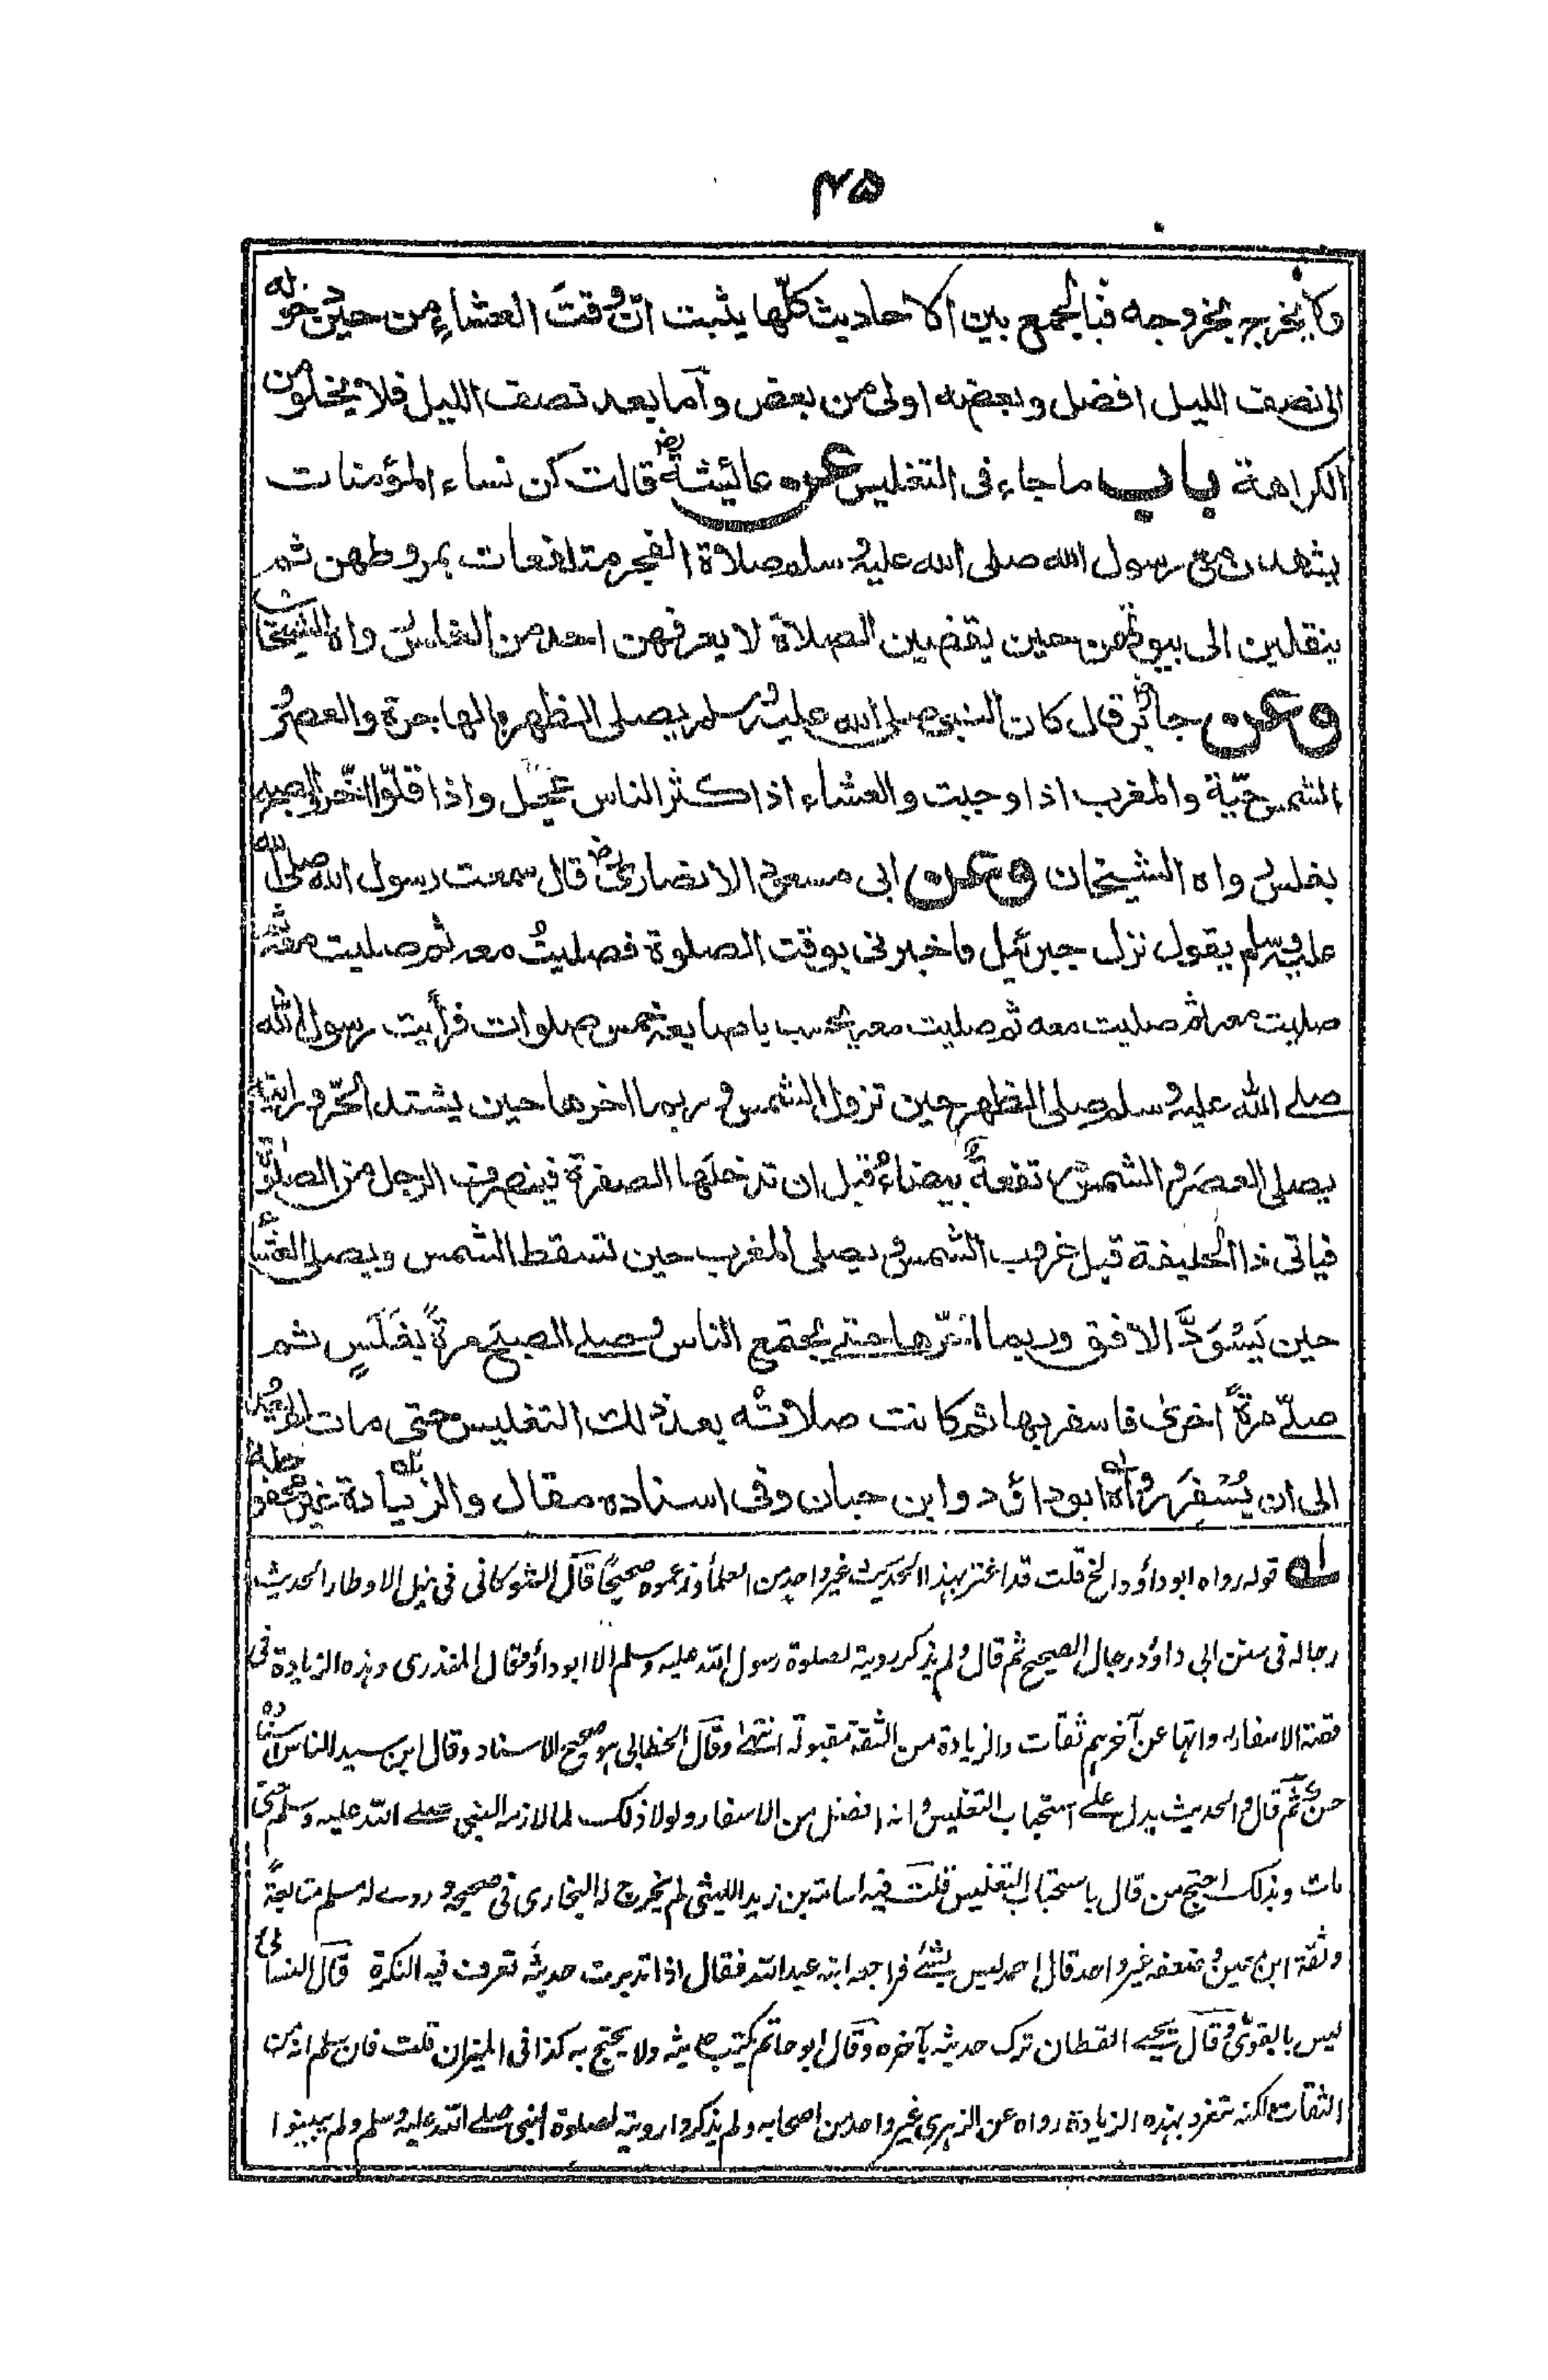 ۴۵
ولا يخرج بخروجه فبالجمع بين الاحاديث كلّها يثبت انّ وقتَ العشاءِ من حين دخوله
الى نصف الليل افضل وبعضه اولى من بعض وآما بعد نصف الليل فلا يخلو من
الكراهة باب ما جاء فى التغليس عن عائيشة رض قالت كن نساء المؤمنات
يشهدن مع رسول الله صلى الله عليه وسلم صلاة الفجر متلفعات بمروطهن ثم
ينقلبن الى بيوتهن حين يقضين الصلاة لا يعرفهن احد من الغلس رواه الشيخان
وعن جابر رض قال كان النبى صلى الله عليه وسلم يصلى الظهر بالهاجرة والعصر و
الشمس حيّة والمغرب اذا وجبت والعشاء اذا كثر الناس عجّل واذا قلّوا اخّر والصبح
بغلس رواه الشيخان وعن ابى مسعود الانصارى رض قال سمعت رسول الله صلى الله
عليه وسلم يقول نزل جبرئيل فاخبرنى بوقت الصلوة فصليتُ معه ثم صليت معه ثم
صليت معه ثم صليت معه ثم صليت معه يحسب باصابعه خمس صلوات فرأيت رسول الله
صلے الله عليه وسلم صلى الظهر حين تزول الشمس وربما اخرها حين يشتد الحرّ ورايته
يصلى العصر والشمس مرتفعةٌ بيضاءُ قبل ان تدخلها الصفرة فينصرف الرجل من الصلوة
فياتى ذا الحليفة قبل غروب الشمس ويصلى المغرب حين تسقط الشمس ويصلى العشاء
حين يَسْوَدُّ الافق وربما اخّرها حتے يجتمع الناس وصلے الصبحَ مرةً بغَلَسٍ ثم
صلّے مرةً اخرى فاسفر بها ثم كانت صلاتُه بعد ذلك التغليس حتى مات لم يعد
الى ان يُسْفِرَ رواه ابوداؤد وابن حبان وفى اسناده مقال والزيادة غير محفوظة
له قوله رواه ابوداؤد الخ قلت قد اغتر بهذا الحديث غير واحد من العلماء وزعموه صحيحًا قال الشوكانى فى نيل الاوطار الحديث
رجاله فى سنن ابى داؤد رجال الصحيح ثم قال ولم يذكر روية لصلوة رسول الله صلى الله عليه وسلم الا ابوداؤد وقال المنذرى وهذه الزيادة فى
قصة الاسفار رواتها عن آخرهم ثقات والزيادة من الثقة مقبولة انتهى وقال الخطابى هو صحيح الاسناد وقال ابن سيد الناس اسناده
حسن ثم قال والحديث يدل علے استحباب التغليس وانه افضل من الاسفار ولولا ذلك لما لازمه النبى صلے الله عليه وسلم حتى
مات وبذلك احتج من قال باستحباب التغليس قلت فيه اسامة بن زيد الليثى لم يخرج له البخارى فى صحيحه وروے له مسلم متابعةً
وثقه ابن معين وضعفه غير واحد قال احمد ليس بشئ فراجعه ابنه عبدالله فقال اذا تدبرت حديثه تعرف فيه النكرة قال النسائى
ليس بالقوى وقال يحيے القطان ترك حديثه بآخره وقال ابو حاتم يكتب حديثه ولا يحتج به كذا فى الميزان قلت فان سلم انه من
الثقات لكنه تفرد بهذه الزيادة رواه عن الزهرى غير واحد من اصحابه ولم يذكروا روية لصلوة النبى صلے الله عليه وسلم ولم يبينوا